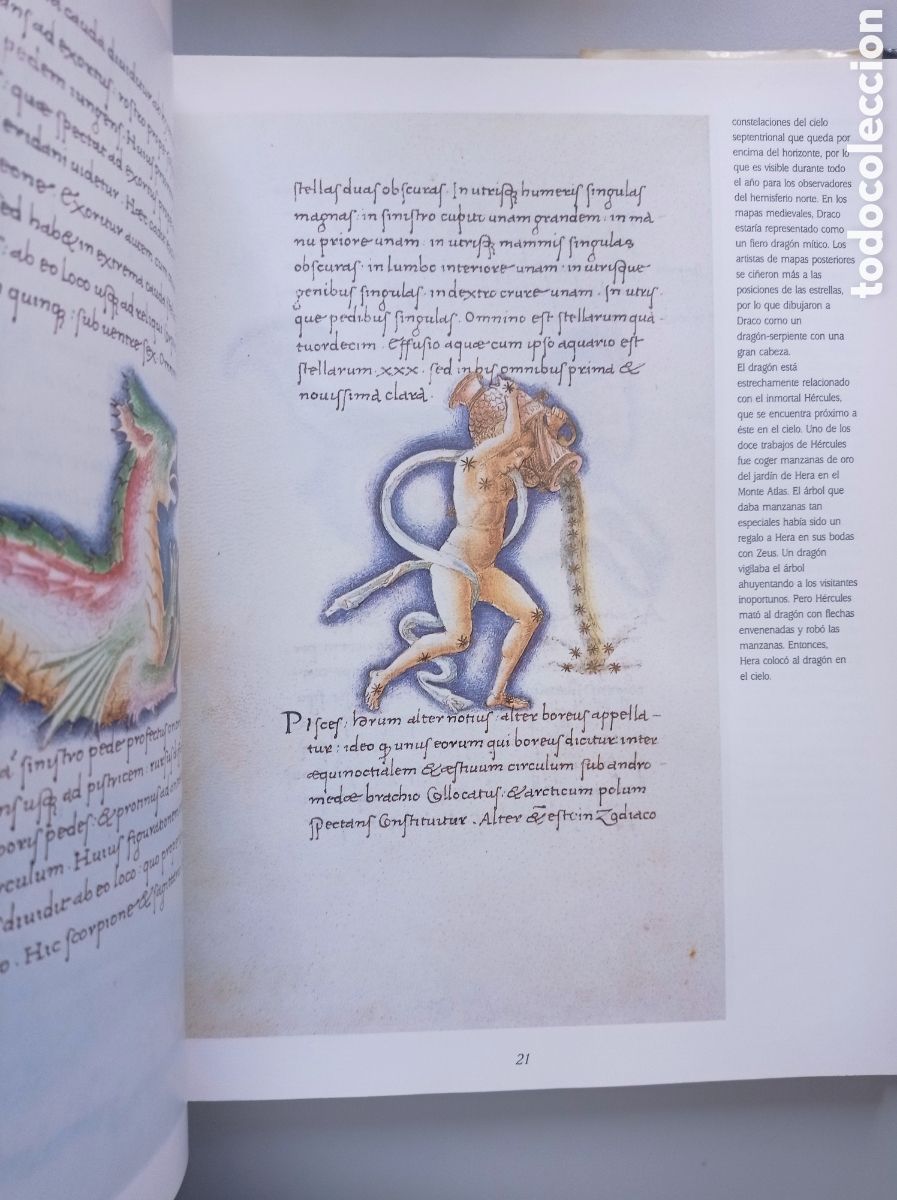 cauda diuiditur
ad exortus: rostro
pedem iungens. Huius
: quæ spectat ad exortus
eridani uidetur. Hæc
eone & exoruntur autem cum
sed hab& in extrema cauda
: ab eo loco usq ad reliqui
quinq: sub uentre sex. Omni
sinistro pede profectus
usq ad pistricem: rursus
poris pedes: & protinus ad
rculum. Huius figuratio
diuidit ab eo loco: quo
o. Hic scorpione & sagittario
stellas duas obscuras. In utrisq humeris singulas
magnas: in sinistro cupitu unam grandem: in ma
nu priore unam: in utrisq mammis singulas
obscuras: in lumbo interiore unam: in utrisque
genibus singulas. in dextro crure unam. In utris
que pedibus singulas. Omnino est stellarum qua
tuordecim. Effusio aquæ cum ipso aquario est
stellarum .xxx. sed in his omnibus prima &
nouissima clara.
Pisces: horum alter notius: alter boreus appella-
tur: ideo q unus eorum qui boreus dicitur inter
æquinoctialem & æstiuum circulum sub andro
medæ brachio Collocatus: & arcticum polum
spectans Constituitur. Alter est in Zodiaco
constelaciones del cielo
septentrional que queda por
encima del horizonte, por lo
que es visible durante todo
el año para los observadores
del hemisferio norte. En los
mapas medievales, Draco
estaría representado como
un fiero dragón mítico. Los
artistas de mapas posteriores
se ciñeron más a las
posiciones de las estrellas,
por lo que dibujaron a
Draco como un
dragón-serpiente con una
gran cabeza.
El dragón está
estrechamente relacionado
con el inmortal Hércules,
que se encuentra próximo a
éste en el cielo. Uno de los
doce trabajos de Hércules
fue coger manzanas de oro
del jardín de Hera en el
Monte Atlas. El árbol que
daba manzanas tan
especiales había sido un
regalo a Hera en sus bodas
con Zeus. Un dragón
vigilaba el árbol
ahuyentando a los visitantes
inoportunos. Pero Hércules
mató al dragón con flechas
envenenadas y robó las
manzanas. Entonces,
Hera colocó al dragón en
el cielo.
21
todocoleccion